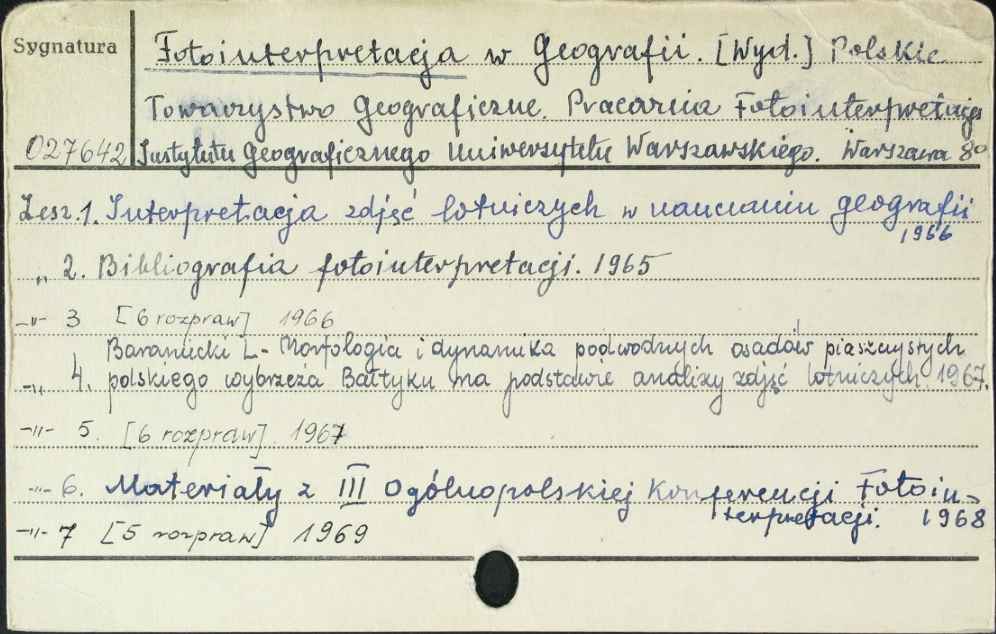 Sygnatura
Fotointerpretacja w Geografii. [Wyd.] Polskie
Towarzystwo Geograficzne. Pracownia Fotointerpretacji
027642 Instytutu Geograficznego Uniwersytetu Warszawskiego. Warszawa 8°
Zesz. 1. Interpretacja zdjęć lotniczych w nauczaniu geografii
1966
„ 2. Bibliografia fotointerpretacji. 1965
-"- 3 [6 rozpraw] 1966
Baraniecki L - Morfologia i dynamika podwodnych osadów piaszczystych
-"- 4. polskiego wybrzeża Bałtyku na podstawie analizy zdjęć lotniczych. 1967.
-"- 5. [6 rozpraw] 1967
-"- 6. Materiały z III Ogólnopolskiej Konferencji Fotoin-
terpretacji. 1968
-"- 7 [5 rozpraw] 1969